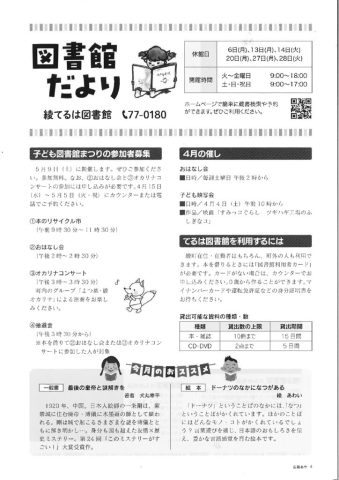 図書館だより
綾てるは図書館 77-0180
休館日
6日(月)、13日(月)、14日(火)
20日(月)、27日(月)、28日(火)
開館時間
火～金曜日 9:00～18:00
土・日・祝日 9:00～17:00
ホームページで簡単に蔵書検索や予約
ができます。ぜひご利用ください。
子ども図書館まつりの参加者募集
5月9日(土)に開催します。ぜひご参加くださ
い。参加無料。なお、②おはなし会と③オカリナコ
ンサートの参加には申し込みが必要です。4月15日
(水)～5月5日(火・祝)にカウンターまたは電
話でご予約ください。
①本のリサイクル市
(午前9時30分～11時30分)
②おはなし会
(午後2時～2時30分)
③オカリナコンサート
(午後3時～3時30分)
④抽選会
(午後3時30分から)
※本を借りて②おはなし会または③オカリナコン
サートに参加した人が対象
4月の催し
おはなし会
■日時/毎週土曜日 午後2時から
子ども映写会
■日時/4月4日(土) 午前10時から
■作品/映画「すみっコぐらし ツギハギ工場のふ
しぎなコ」
てるは図書館を利用するには
綾町在住・在勤者はもちろん、町外の人も利用で
きます。本を借りるときには「図書館利用者カード」
が必要です。カードがない場合は、カウンターでお
申し込みください。
貸出可能な資料の種類・数
種類 貸出数の上限 貸出期間
本・雑誌 10冊まで 15日間
CD・DVD 2点まで 5日間
今月のおススメ
一般書 最後の皇帝と謎解きを
著者 犬丸幸平
絵本 ドーナツのなかになつがある
「ドーナツ」ということばのなかには、「なつ」
ということばがかくれています。ほかのことば
にはどんなモノ・コトがかくれているでしょ
う?言葉遊びを通し、日本語のおもしろさを伝
え、豊かな言語感覚を育む絵本です。